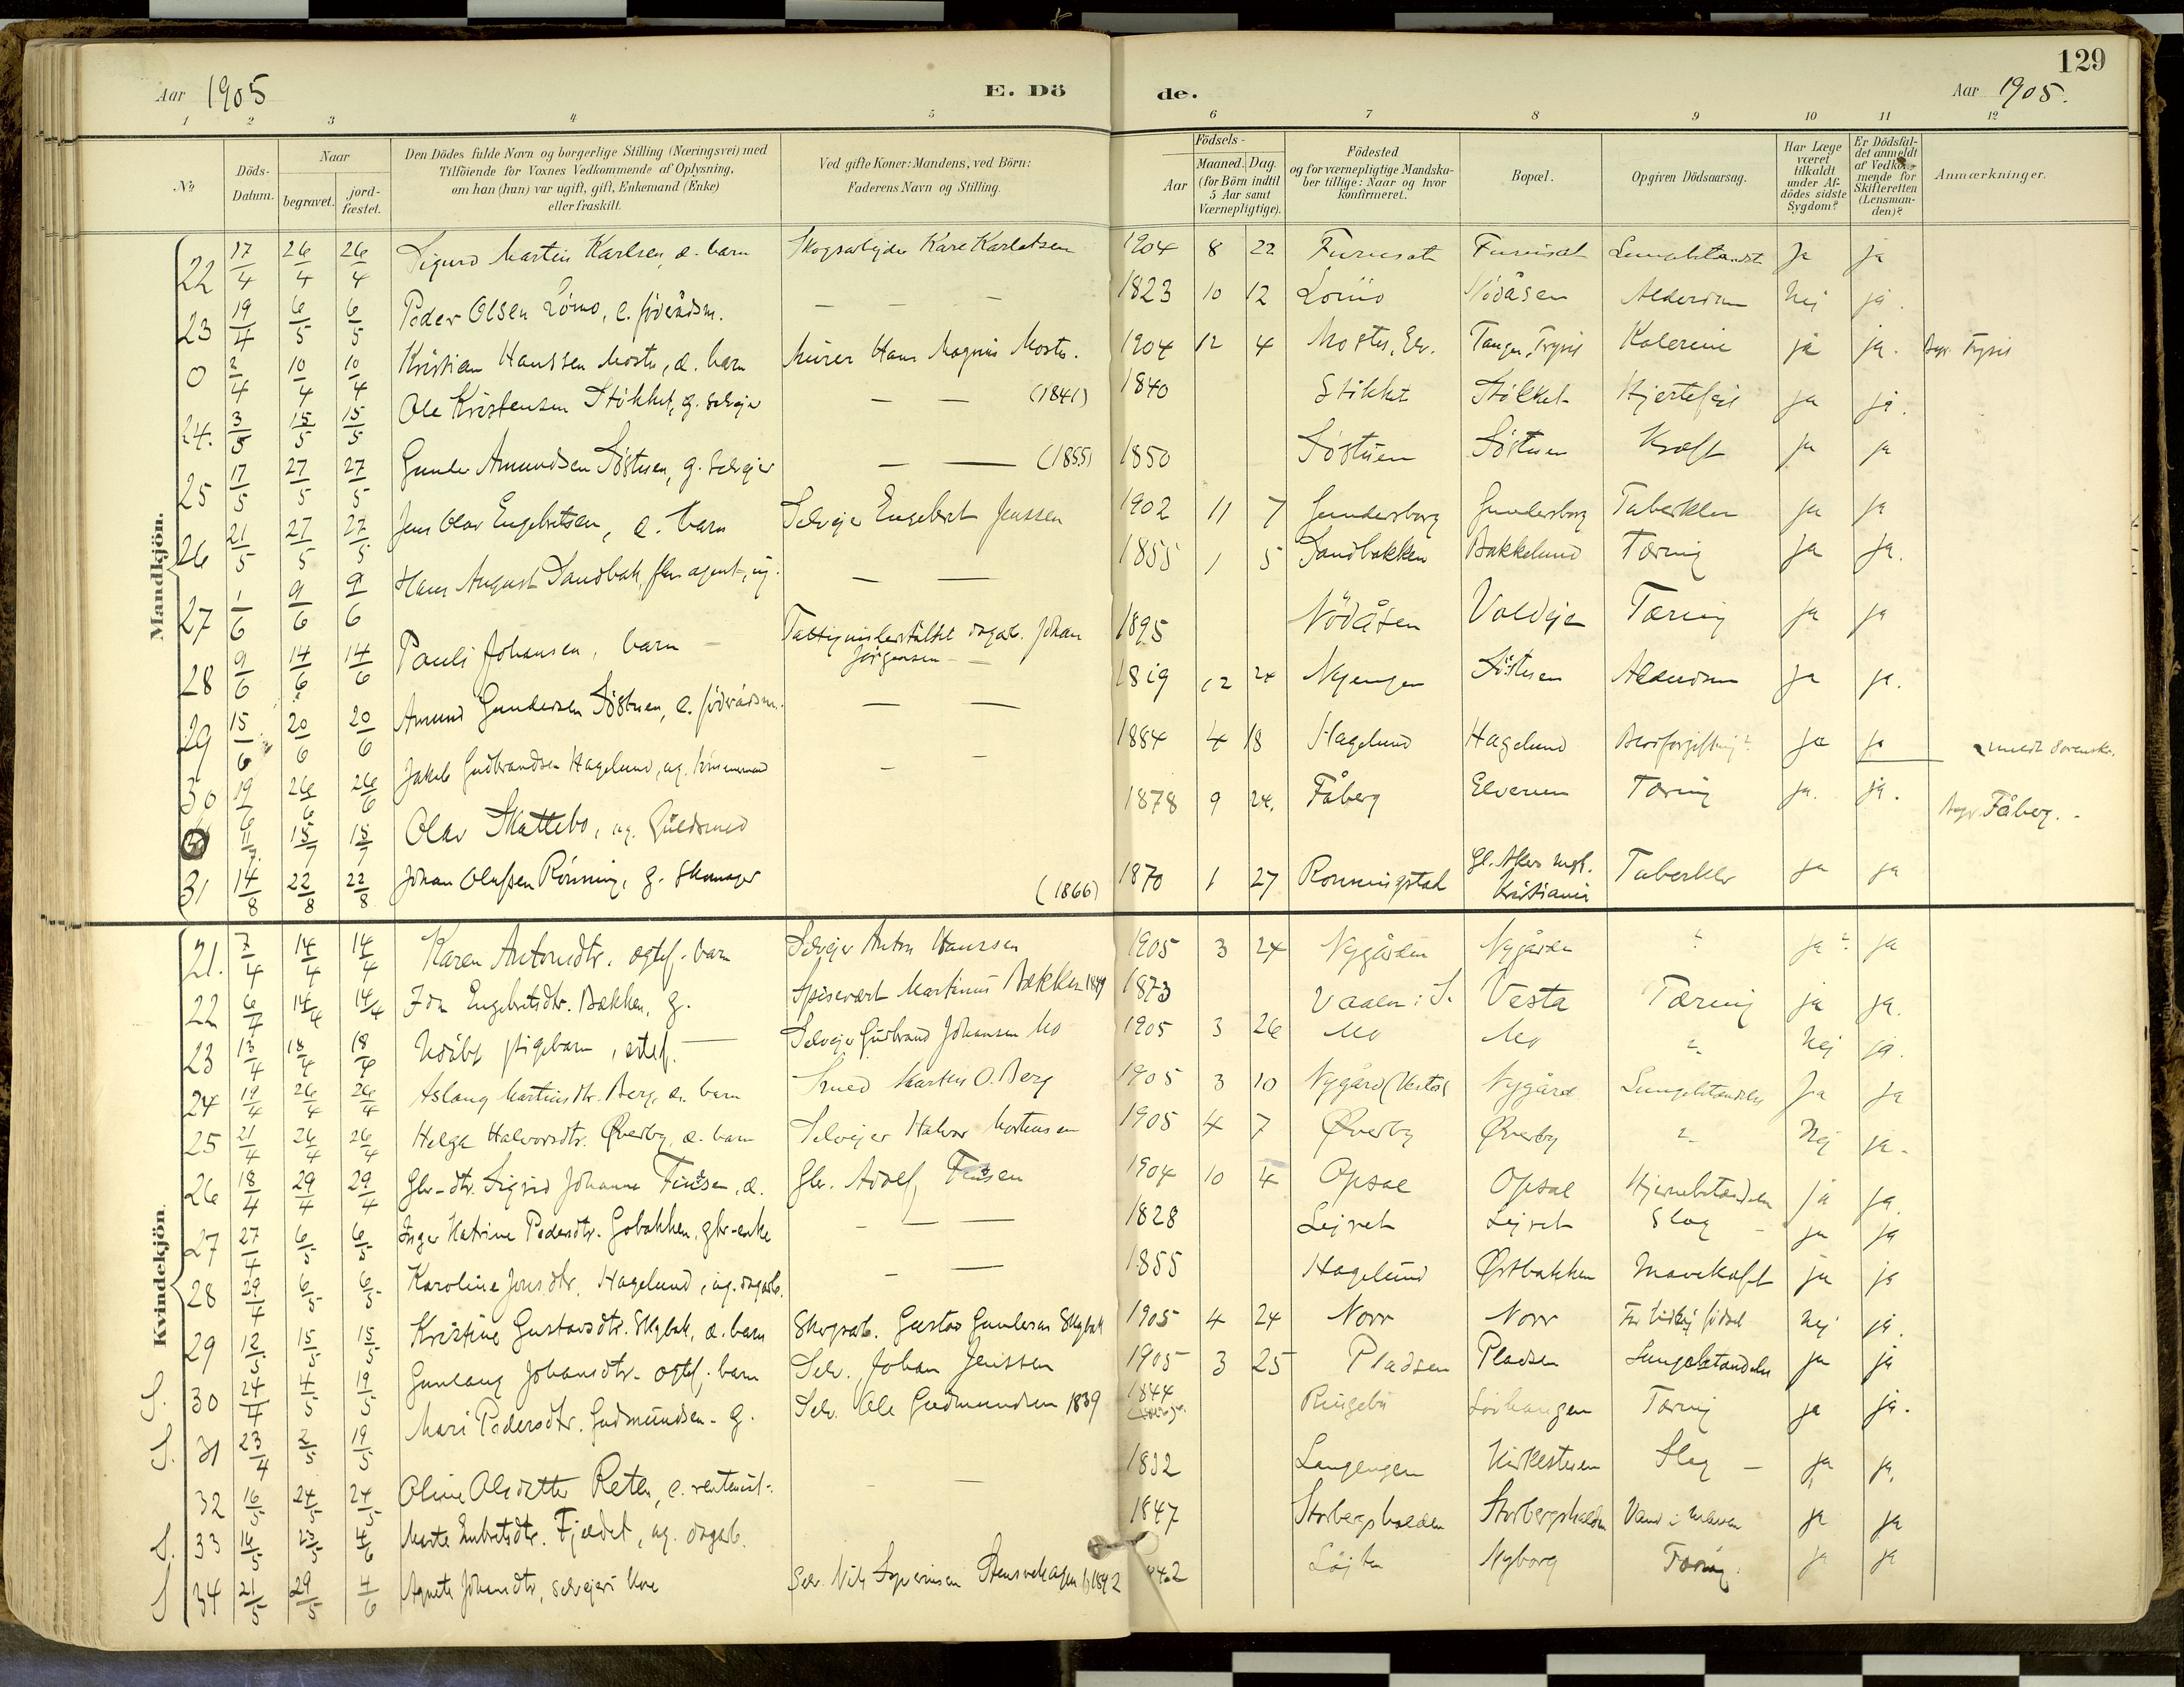 129
Aar 1905 E. Dö de. Aar 1905.
1 2 3 4 5 6 7 8 9 10 11 12
No. Döds-Datum. Naar begravet. jord-fæstet. Den Dödes fulde Navn og borgerlige Stilling (Næringsvei) med Tilföiende for Voxnes Vedkommende af Oplysning, om han (hun) var ugift, gift, Enkemand (Enke) eller fraskilt. Ved gifte Koner: Mandens, ved Börn: Faderens Navn og Stilling. Födsels- Aar Maaned. Dag. (for Börn indtil 5 Aar samt Værnepligtige). Födested og for værnepligtige Mandskaber tillige: Naar og hvor konfirmeret. Bopæl. Opgiven Dödsaarsag. Har Læge været tilkaldt under Afdödes sidste Sygdom? Er Dödsfaldet anmeldt af Vedkommende for Skifteretten (Lensmanden)? Anmærkninger.
Mandkjön.
22 17/4 26/4 26/4 Sigurd Martin Karlsen, æ. barn Skogsarbejder Kare Karlsen 1904 8 22 Furuset Furuset Ja ja
23 19/4 6/5 6/5 Peder Olsen Lömo, e. föderådsm. — — — 1823 10 12 Lömo Nödåsen Alderdom Nej ja.
0 2/4 10/4 10/4 Kristian Hanssen Moster, æ. barn Murer Hans Magnus Moster. 1904 12 4 Moster, Elv. Tangen, Trysil Kolerine ja ja. Begr. Trysil
24. 3/5 15/5 15/5 Ole Kristensen Stökket, g. selvejer — — (1841) 1840 Stökket Stökket Hjertefejl ja ja.
25 17/5 27/5 27/5 Gunder Amundsen Söstuen, g. selvejer — — (1855) 1850 Söstuen Söstuen Kræft ja ja
26 21/5 27/5 27/5 Jens Olav Engebretsen, æ. barn Selvejer Engebret Jenssen 1902 11 7 Gundersborg Gundersborg Tuberkler ja ja
27 1/6 9/6 9/6 Hans August Sandbak, agent, ug. — — 1855 1 5 Sandbakken Bakkelund Tæring ja ja.
28 9/6 14/6 14/6 Pauli Johansen, barn — dagarb. Johan Jörgensen — 1895 Nödåsen Tæring ja ja
29 15/6 20/6 20/6 Amund Gundersen Söstuen, e. föderådsm. — — 1819 12 24 Nyengen Söstuen Alderdom ja ja.
30 19/6 26/6 26/6 Jakob Gudbrandsen Hagelund, ug. — — 1884 4 18 Hagelund Hagelund Blodforgiftning? ja ja
11/7 15/7 15/7 Olav Skattebo, ug. Guldsmed 1878 9 24. Fåberg Elverum Tæring ja. ja. Begr. Fåberg.
31 14/8 22/8 22/8 Johan Olafsen Rönning, g. Skomager (1866) 1870 1 27 Rönningstad Gl. Aker mgh. Kristiania Tuberkler ja ja
Kvindekjön.
21. 7/4 14/4 14/4 Karen Antondtr. ægtef. barn Selvejer Anton Hanssen 1905 3 24 Nygården Nygården ? ja? ja
22 6/4 14/4 14/4 Ida Engebretsdtr. Bækken, g. Spisevært Martinus Bækken 1849 1873 Vaaler i S. Vesta Tæring ja ja.
23 13/4 18/4 18/4 Udöbt pigebarn, ægtef. — Selvejer Gudbrand Johansen Mo 1905 3 26 Mo Mo ? Nej ja.
24 19/4 26/4 26/4 Aslaug Martinsdtr. Berg, æ. barn Smed Martin O. Berg 1905 3 10 Nygård Nygård Lungebetændelse Ja Ja
25 21/4 26/4 26/4 Helga Halvorsdtr. Øverby, æ. barn Selvejer Halvor Mortensen 1905 4 7 Øverby Øverby ? Nej ja.
26 18/4 29/4 29/4 Gbr-dtr. Sigrid Johanne æ. Gbr. Adolf 1904 10 4 Opsal Opsal Hjernebetændelse ja ja.
27 27/4 6/5 6/5 Inger Katrine Pedersdtr. Gobakken, gbr-enke — — — 1828 Lejret Lejret Slag — ja ja
28 29/4 6/5 6/5 Karoline Jonsdtr. Hagelund, ug. dagarb. — — 1855 Hagelund Østbakken Mavekræft ja ja
29 12/5 15/5 15/5 Kristine Gustavsdtr. Skybak, æ. barn Skogsarb. Gustav Gundersen Skybak 1905 4 24 Norr Norr For tidlig födsel Nej ja.
S. 30 24/4 4/5 19/5 Gunlaug Johansdtr. ægtef. barn Selv. Johan Jenssen 1905 3 25 Pladsen Pladsen Lungebetændelse ja ja
S. 31 23/4 2/5 19/5 Mari Pedersdtr. Gudmundsen g. Selv. Ole Gudmundsen 1839 1844 Ringebu Lövhaugen Tæring ja ja.
32 16/5 24/5 24/5 Oline Olsdatter Reten, e. — — 1832 Langengen Kirkestuen Slag — ja ja.
S. 33 16/5 23/5 4/6 Marte Embretsdtr. Fjældet, ug. dagarb. 1847 Storbergshalden Storbergshalden Vand i maven ja ja
S 34 21/5 29/5 4/6 Agnete Johansdtr, selvejers kone Selv. Nils Syverinsen Stensvehagen f. 1842 1842 Löjten Nyborg Tæring. ja ja